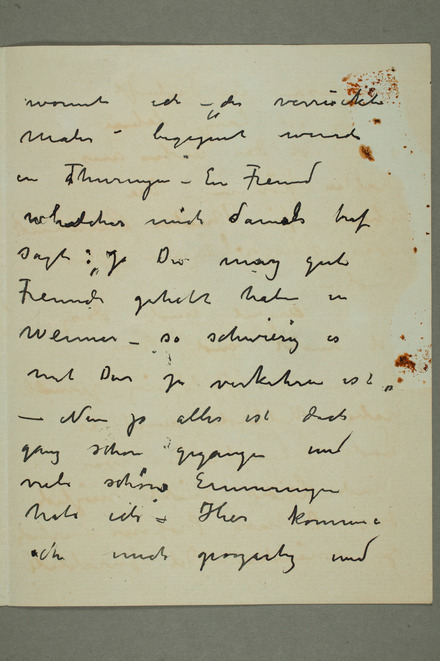 womit ich – „der verrückte
Maler" – begegnet wurde
in Thüringen – Ein Freund
welcher mich damals traf
sagte: „Ja Du mag gute
Freunde gehabt haben in
Weimar – so schwierig es
mit Dir zu verkehren ist"
– Nun ja alles ist doch
ganz schön gegangen und
viele schöne Erinnerungen
habe ich – Hier komme
ich mich und